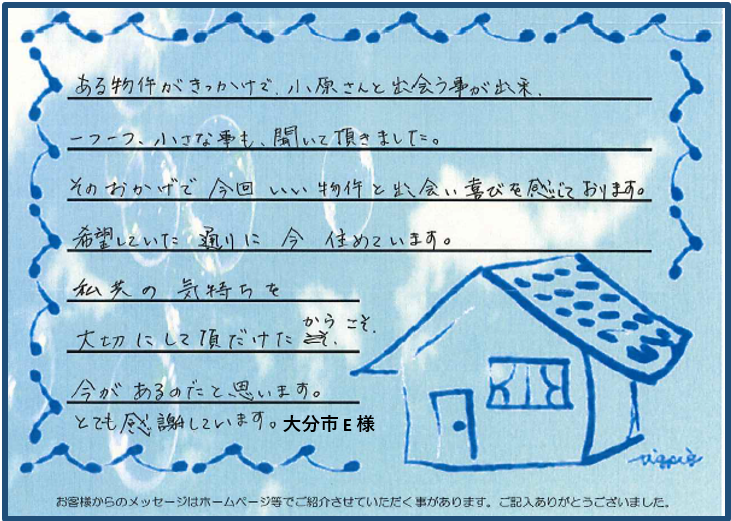 ある物件がきっかけで、小原さんと出会う事が出来、
一つ一つ、小さな事も、聞いて頂きました。
そのおかげで 今回 いい物件と出会い喜びを感じております。
希望していた 通りに 今 住めています。
私共の 気持ちを
大切にして頂だけた からこそ、
今が あるのだと思います。
とても感謝しています。大分市 E 様
お客様からのメッセージはホームページ等でご紹介させていただく事があります。ご記入ありがとうございました。